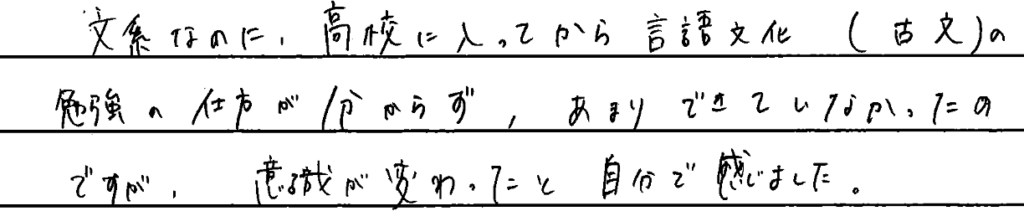 文系なのに、高校に入ってから言語文化(古文)の
勉強の仕方が分からず、あまりできていなかったの
ですが、意識が変わったと自分で感じました。